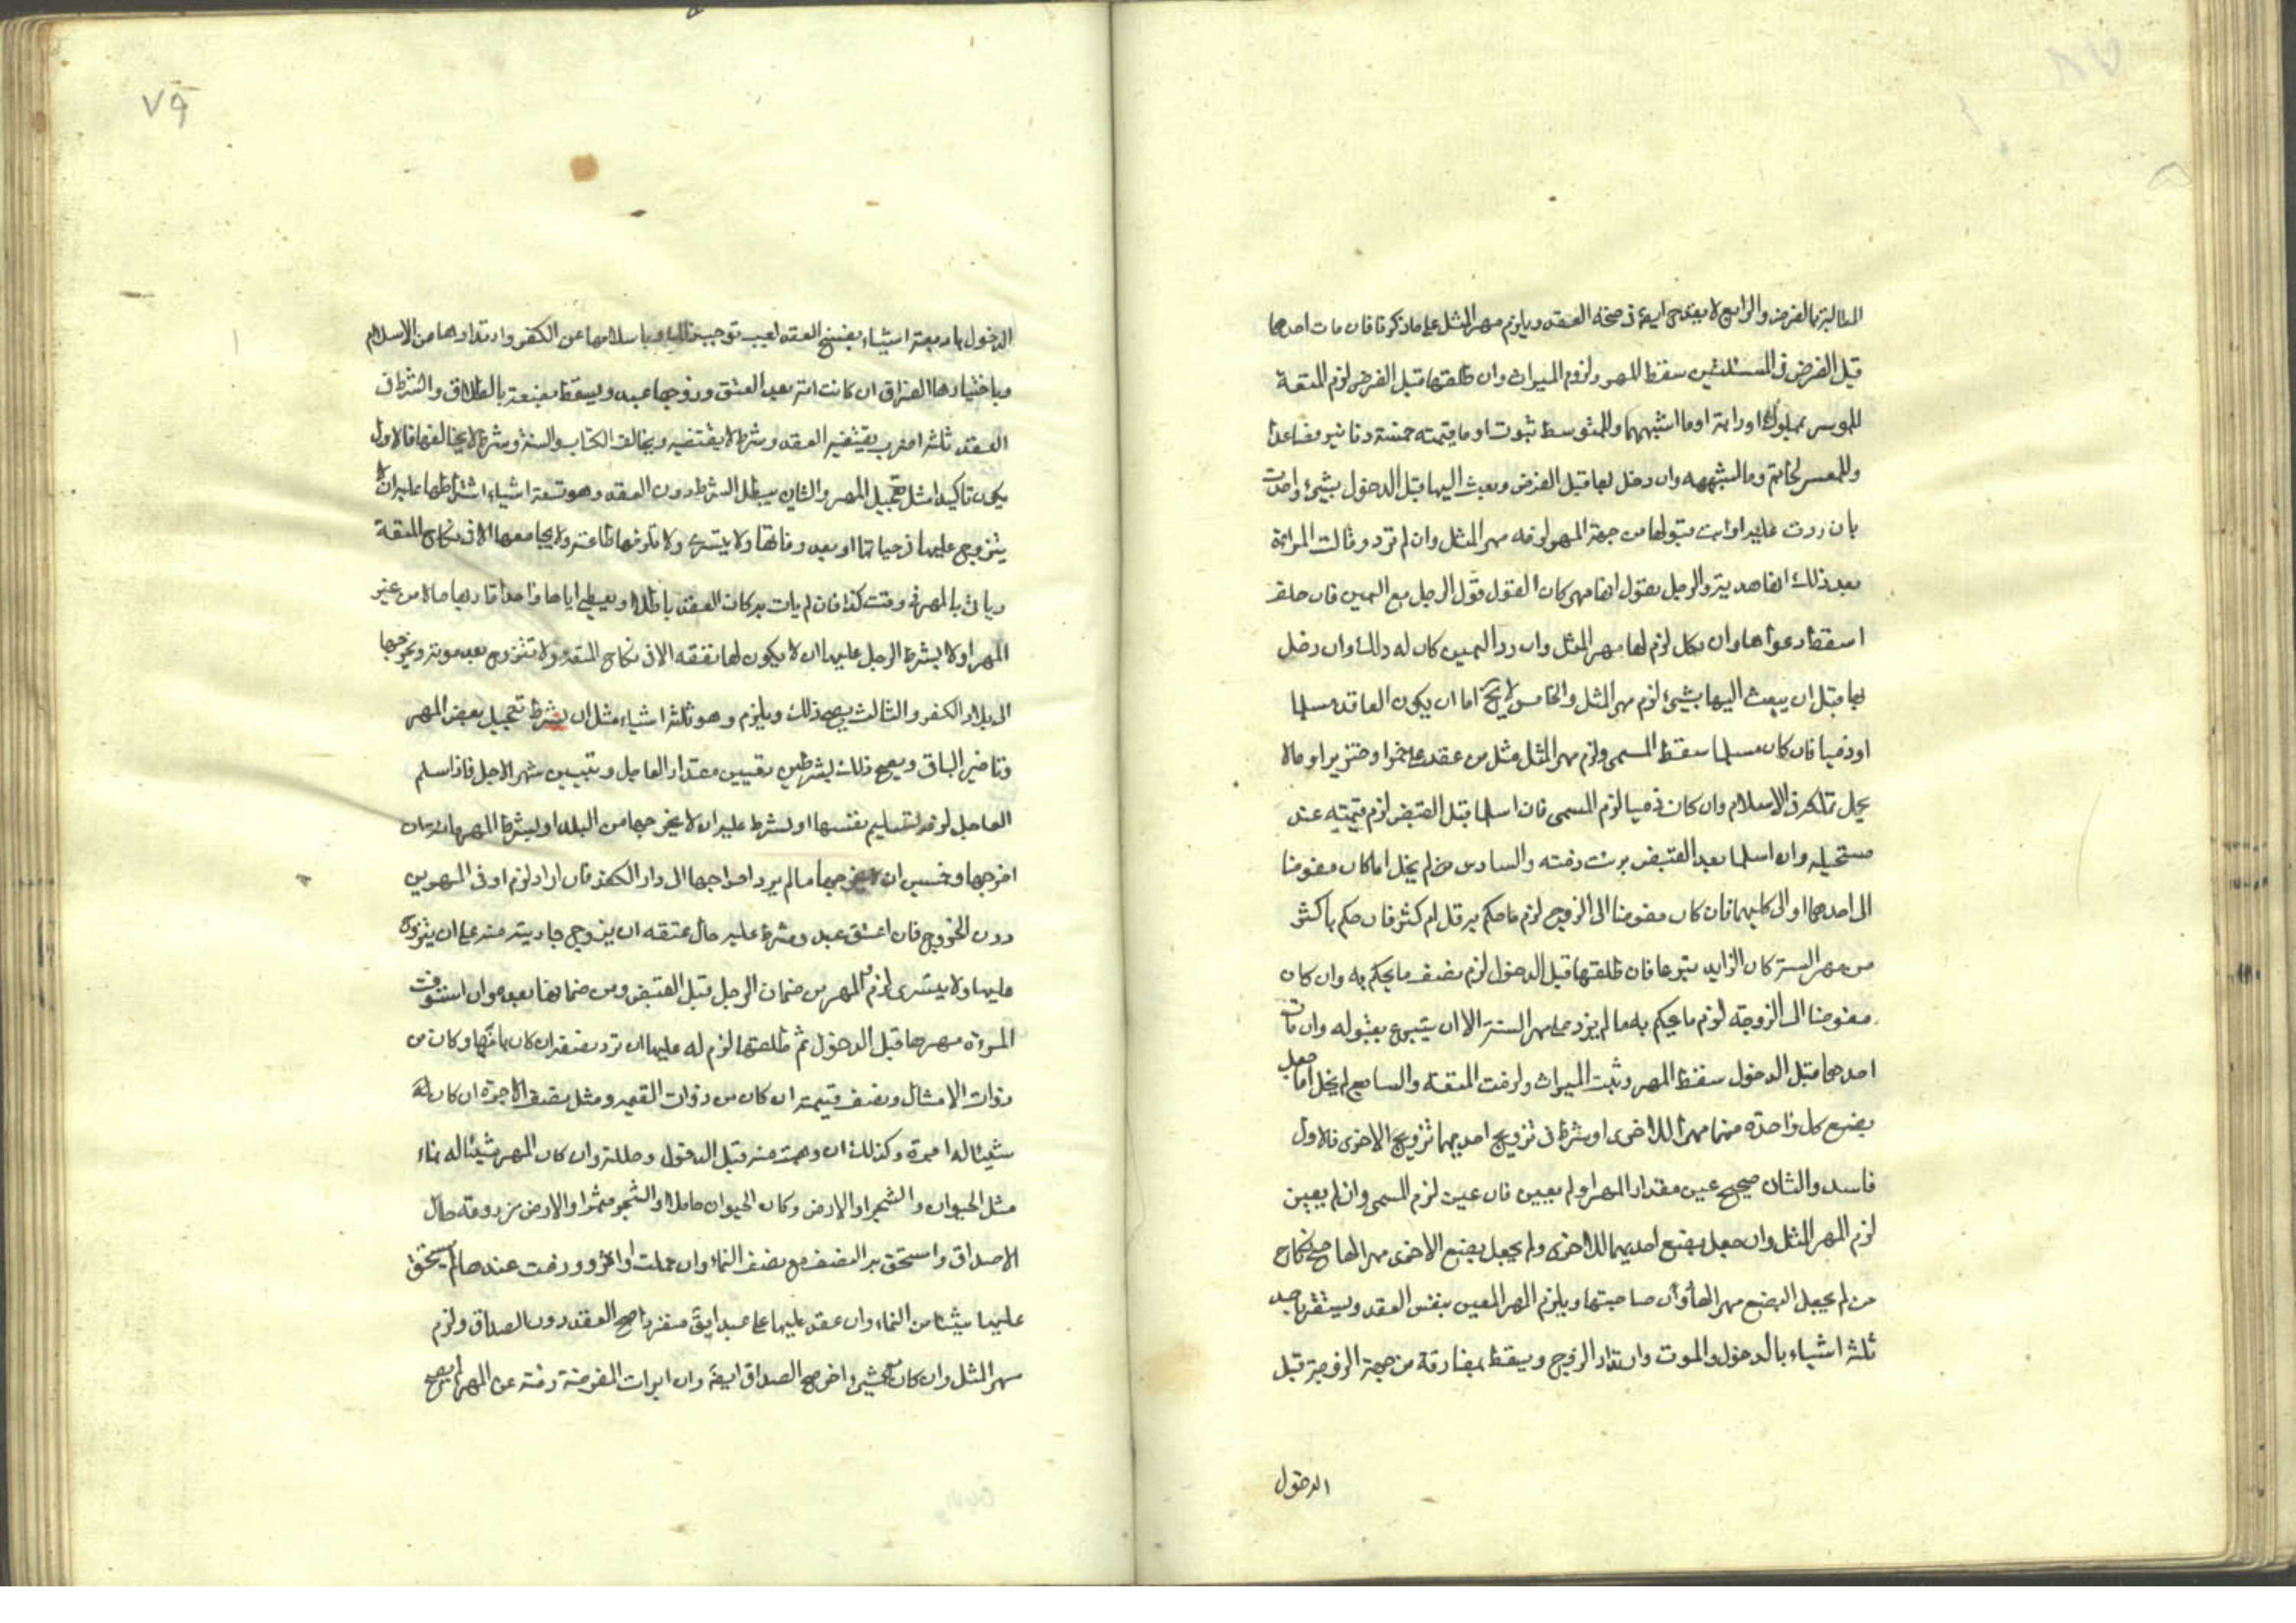 المطالبة بالفرض والرابع لا يقدح ايضا في صحة العقد ويلزم مهر المثل على ما ذكرنا فان مات احدهما
قبل الفرض في المسئلتين سقط المهر ولزم الميراث وان طلقها قبل الفرض لزم المتعة
للموسر بمملوك او دابة او ما اشبههما وللمتوسط بثوب او ما قيمته خمسة دنانير فصاعدا
وللمعسر بخاتم وما اشبهه وان دخل بها قبل الفرض وبعث اليها قبل الدخول بشيء
بان ردت عليه او ابت قبولها من جهة المهر لزمه مهر المثل وان لم ترد وقالت المراة
بعد ذلك انها هدية والرجل يقول انها مهر كان القول قول الرجل مع اليمين فان حلف
اسقط دعواها وان نكل لزم لها مهر المثل وان رد اليمين كان له ذلك وان دخل
بها قبل ان يبعث اليها بشيء لزم مهر المثل والخامس لا يخ اما ان يكون العاقد مسلما
او ذميا فان كان مسلما سقط المسمى ولزم مهر المثل مثل من عقد على خمر او خنزير او ما لا
يحل تملكه في الاسلام وان كان ذميا لزم المسمى فان اسلما قبل القبض لزم قيمته عند
مستحليه وان اسلما بعد القبض برئت ذمته والسادس لم يخل اما كان مفوضا
الى احدهما او الى كليهما فان كان مفوضا الى الزوج لزم ما حكم به قل ام كثر فان حكم باكثر
من مهر السنة كان الزايد تبرعا فان طلقها قبل الدخول لزم نصف ما يحكم به وان كان
مفوضا الى الزوجة لزم ما يحكم به ما لم يزد على مهر السنة الا ان يتبرع بقبوله وان مات
احدهما قبل الدخول سقط المهر وثبت الميراث ولزمت المتعة والسابع لم يخل اما جعل
بضع كل واحدة منهما مهرا للاخرى او شرط في تزويج احديهما تزويج الاخرى فالاول
فاسد والثاني صحيح عين مقدار المهر او لم يعين فان عين لزم المسمى وان لم يعين
لزم المهر المثل وان جعل بضع احديهما للاخرى ولم يجعل بضع الاخرى مهرا لها صح نكاح
من لم يجعل البضع مهرا لها دون صاحبتها ويلزم المهر المعين بنفس العقد ويستقر باحد
ثلثة اشياء بالدخول والموت وارتداد الزوج ويسقط بمفارقة من جهة الزوجة قبل
الدخول
الدخول باربعة اشياء بفسخ العقد لعيب توجب وباسلامها عن الكفر وارتدادها من الاسلام
وباختيارها الفراق ان كانت امة بعد العتق وزوجها عبد ويسقط نصفه بالطلاق والشرط في
العقد ثلثة اضرب يقتضيه العقد وشرط لا يقتضيه ويخالف الكتاب والسنة وشرط لا يخالفها فالاول
يكون تاكيدا مثل تعجيل المهر والثاني يبطل الشرط دون العقد وهو تسعة اشياء اشتراطها عليه ان لا
يتزوج عليها في حياتها او بعد وفاتها ولا يتسرى ولا تلزمها طاعته ولا يجامعها الا في نكاح المتعة
وياتي بالمهر في وقت كذا فان لم يات به كان العقد باطلا او يعطي اباها واحدا قاربها مالا من غير
المهر او لا يشرط الرجل عليها ان لا يكون لها نفقة الا في نكاح المتعة ولا تتزوج بعد موته ويخرجها
الى بلاد الكفر والثالث يصح ذلك ويلزم وهو ثلثة اشياء مثل ان يشرط تعجيل بعض المهر
وتاخير الباقي ويصح ذلك بشرطين تعيين مقدار العاجل وتبيين شهر الاجل فاذا سلم
العاجل لزمه تسليم نفسها او يشرط عليه ان لا يخرجها من البلد او يشرط المهر مائة ان
اخرجها وخمسين ان لم يخرجها ما لم يرد اخراجها الى دار الكفر فان اراد لزم اوفى المهرين
دون الخروج فان اعتق عبده وشرط عليه حال عتقه ان يزوج جاريته منه على ان يتزوج
عليها ولا يتسرى لزم المهر من ضمان الرجل قبل القبض ومن ضمانها بعده وان استوفت
المرءة مهرها قبل الدخول ثم طلقها لزم له عليها ان ترد نصفه ان كان باقيا وكان من
ذوات الامثال ونصف قيمته ان كان من ذوات القيم ومثل نصف الاجرة ان كان له
شيئا له اجرة وكذلك ان وهبت منه قبل الدخول وحللته وان كان المهر شيئا له نماء
مثل الحيوان والشجر او الارض وكان الحيوان حاملا او الشجر مثمرا والارض مزروعة حال
الاصداق واستحق برد النصف مع نصف النماء وان حملت او اثمر وزرعت عندها لم يستحق
عليها شيئا من النماء وان عقد عليها على عبد ابق منفردا صح العقد دون الصداق ولزم
مهر المثل وان كان مع شيء اخر صح الصداق ايضا وان ابرات المفوضة ذمته عن المهر لم يصح
٧٩